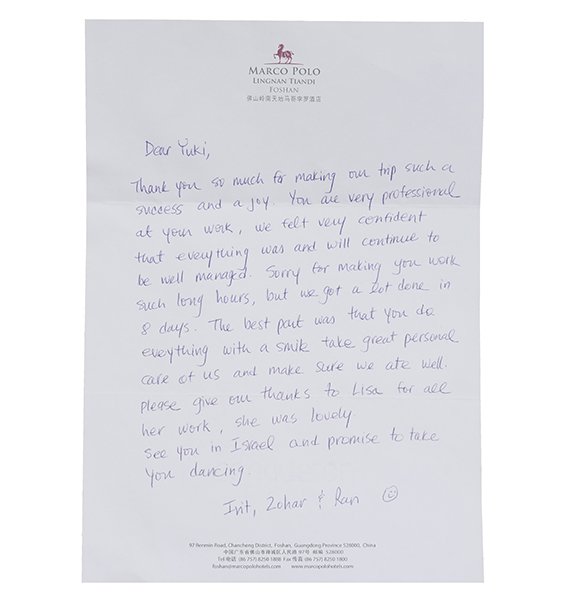 MARCO POLO
LINGNAN TIANDI
FOSHAN
佛山岭南天地马哥孛罗酒店
Dear Yuki,
Thank you so much for making our trip such a
success and a joy. You are very professional
at your work, we felt very confident
that everything was and will continue to
be well managed. Sorry for making you work
such long hours, but we got a lot done in
8 days. The best part was that you do
eveything with a smile take great personal
care of us and make sure we ate well.
please give our thanks to Lisa for all
her work, she was lovely.
See you in Israel and promise to take
you dancing.
Irit, Zohar & Ran ☺
97 Renmin Road, Chancheng District, Foshan, Guangdong Province 528000, China
中国广东省佛山市禅城区人民路97号 邮编 528000
Tel 电话 (86 757) 8250 1888 Fax 传真 (86 757) 8250 1800
foshan@marcopolohotels.com www.marcopolohotels.com